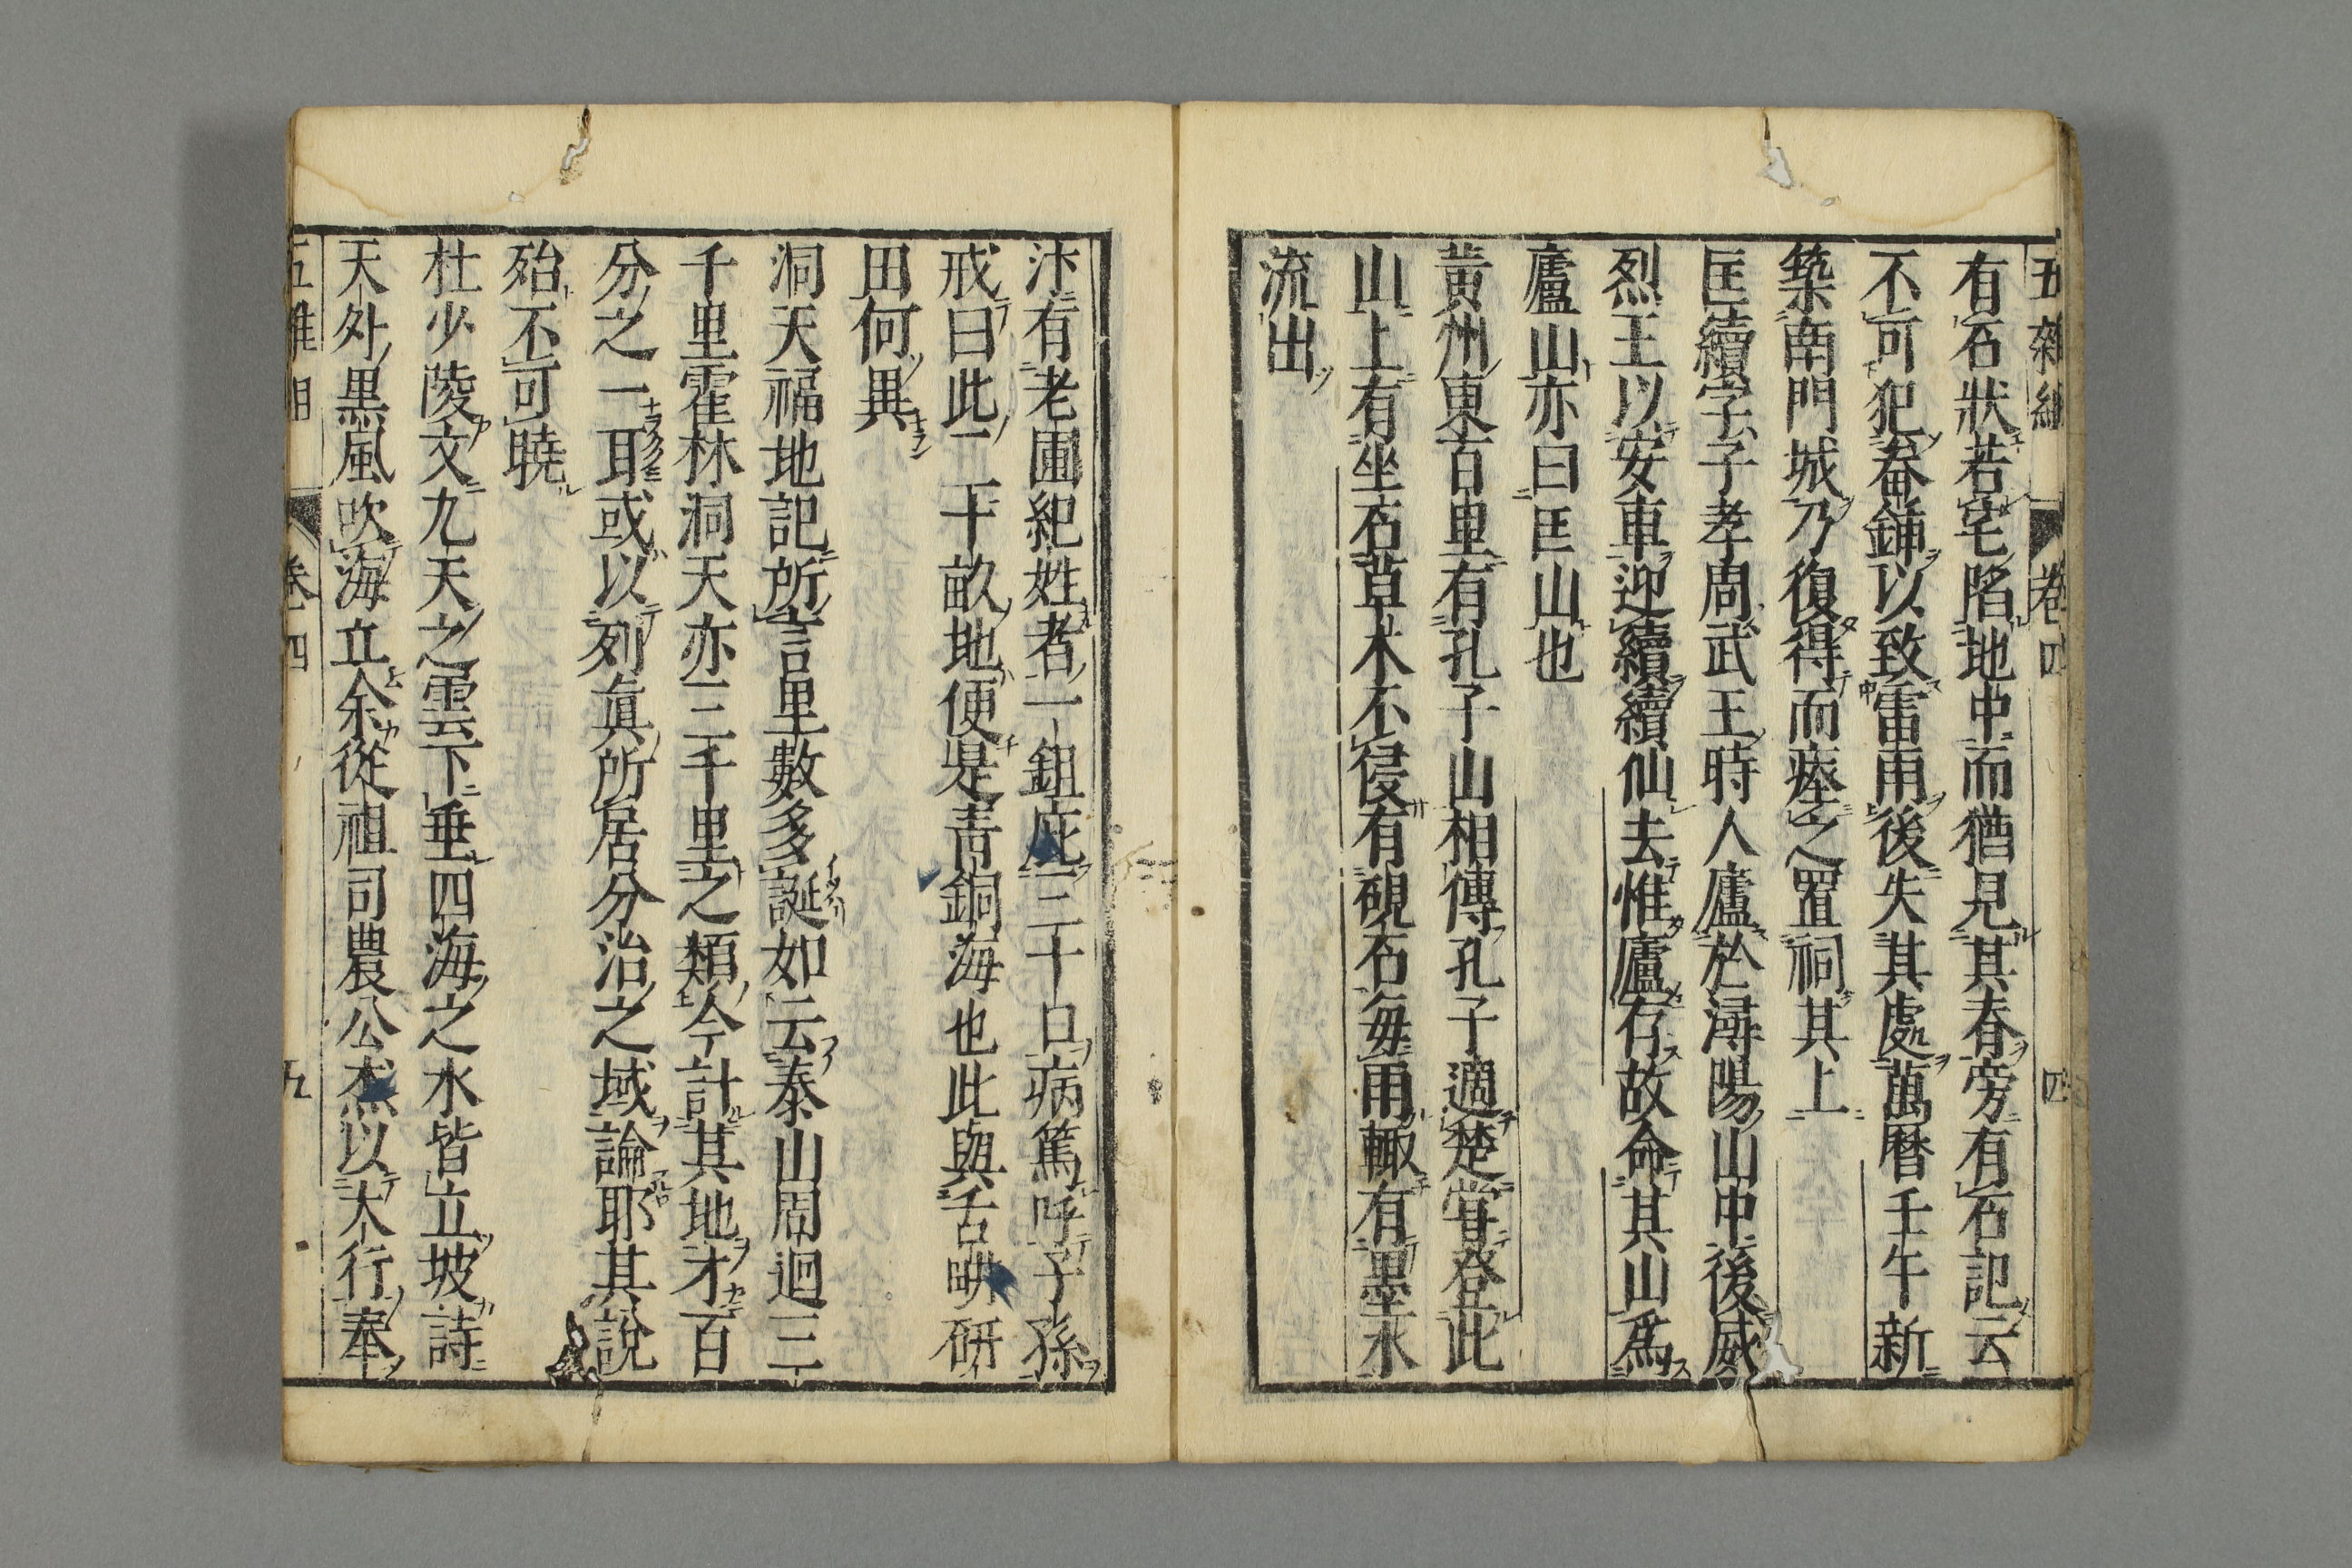 五雜組 卷四 四
有石狀若宅陷地中而猶見其脊旁有石記云
不可犯畚鍤以致雷雨後失其處萬曆壬午新
築南門城乃復得而瘞之置祠其上
匡續字子孝周武王時人廬於潯陽山中後威
烈王以安車迎續續仙去惟廬存故命其山爲
廬山亦曰匡山也
黃州東百里有孔子山相傳孔子適楚嘗登此
山上有坐石草木不侵有硯石每雨輙有墨水
流出
汴有老圃紀姓者一鉏庇三十口病篤呼子孫
戒曰此二十畝地便是青銅海也此與舌畊硏
田何異
洞天福地記所言里數多誕如云泰山周迴三
千里霍林洞天亦三千里之類今計其地才百
分之一耳或以列眞所居分治之域論耶其說
殆不可曉
杜少陵文九天之雲下垂四海之水皆立坡詩
天外黑風吹海立余從祖司農公杰以大行奉
五雜組 卷四 五